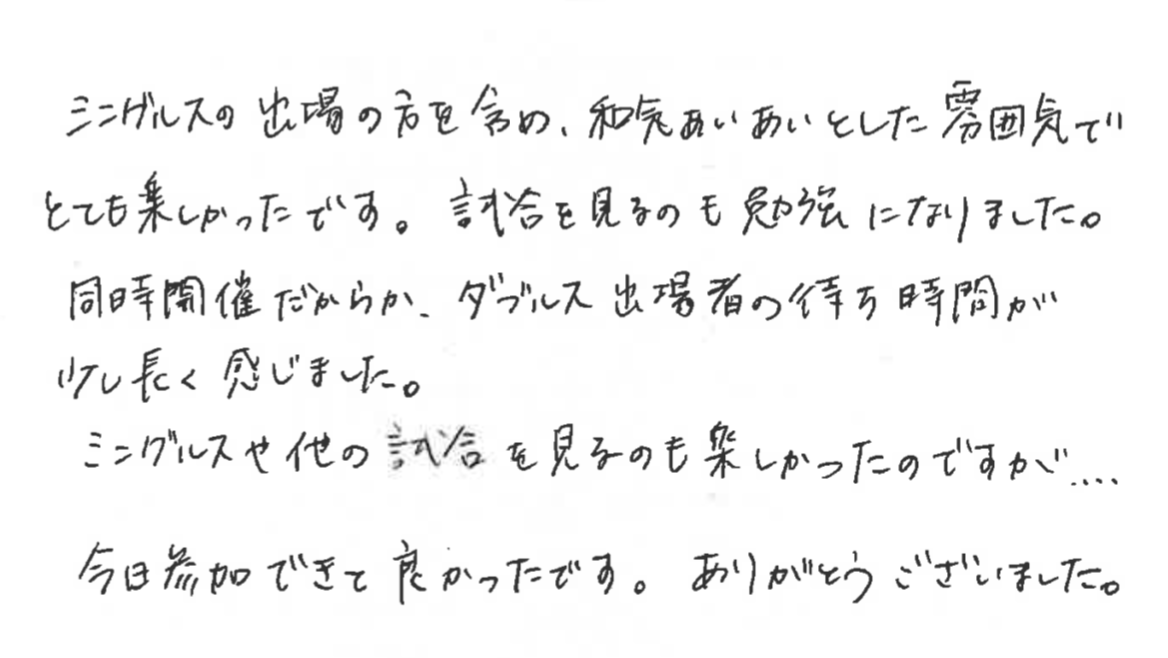 シングルスの出場の方を含め、和気あいあいとした雰囲気で
とても楽しかったです。試合を見るのも勉強になりました。
同時開催だからか、ダブルス出場者の待ち時間が
少し長く感じました。
シングルスや他の試合を見るのも楽しかったのですが....
今日参加できて良かったです。ありがとうございました。